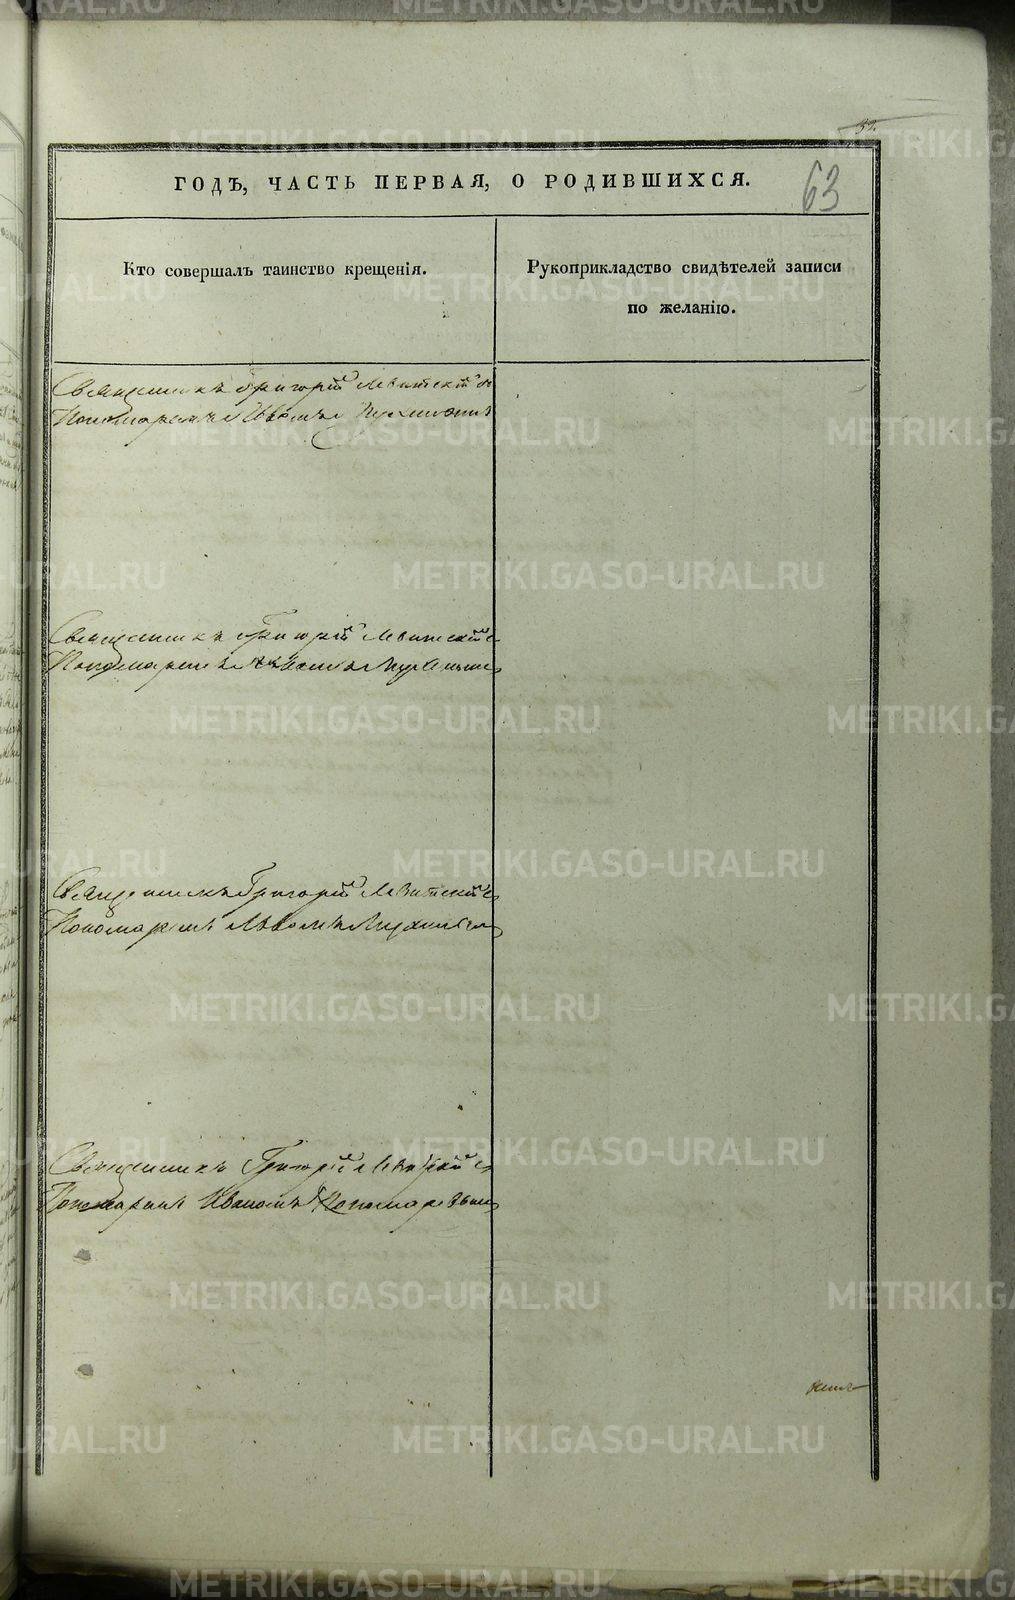 39.
ГОДЪ, ЧАСТЬ ПЕРВАЯ, О РОДИВШИХСЯ.
63
Кто совершалъ таинство крещенія.
Рукоприкладство свидѣтелей записи
по желанію.
Священникъ Григорій Левитскій съ
Пономаремъ Иваномъ
Священникъ Григорій Левитскій с
Пономаремъ
Священникъ Григорій Левитскій с
Пономаремъ
Священникъ Григорій Левитскій с
Пономаремъ Иваномъ Пономаревым
METRIKI.GASO-URAL.RU